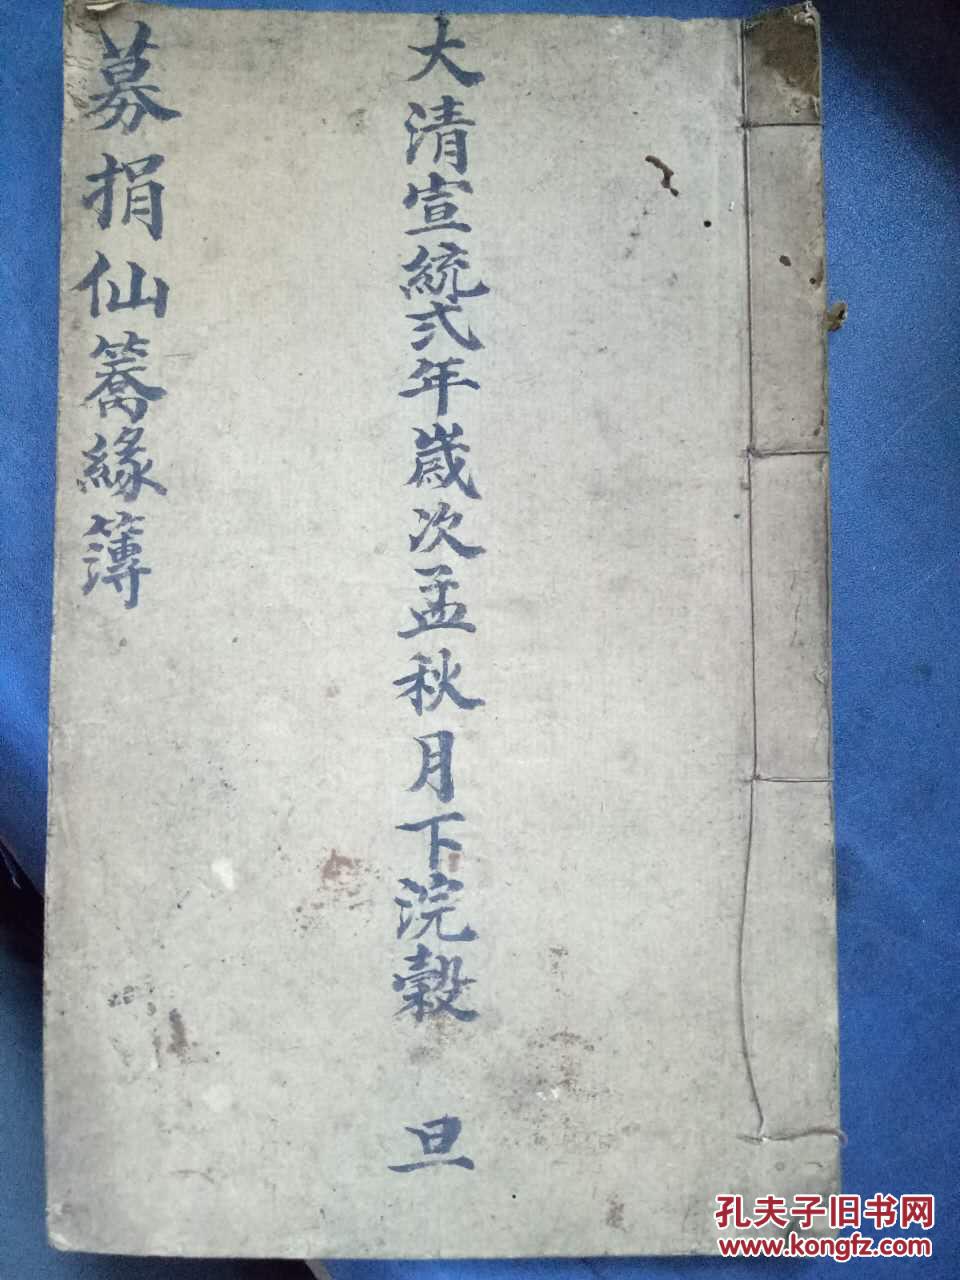 大清宣統弍年歲次孟秋月下浣穀旦
募捐仙簥緣簿
孔夫子旧书网
www.kongfz.com